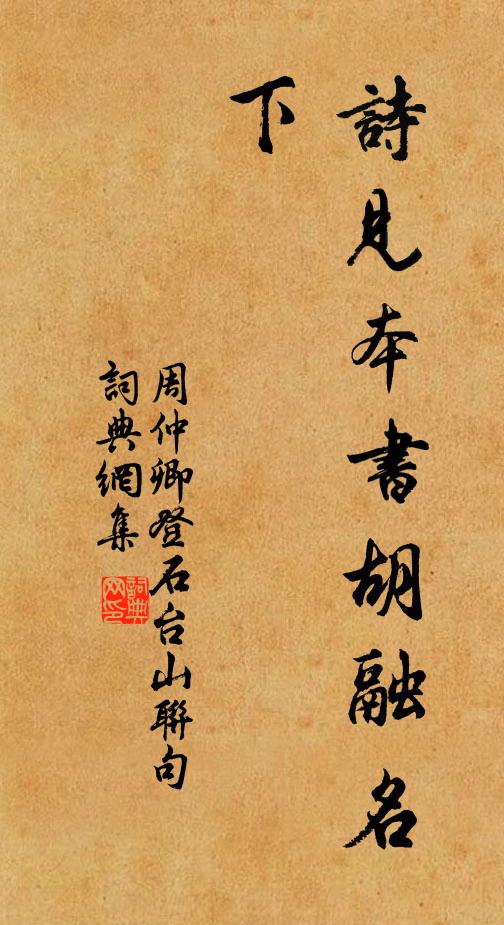 詩見本書胡融名
下
周仲卿登石台山聯句
詞典網集
詞典網印